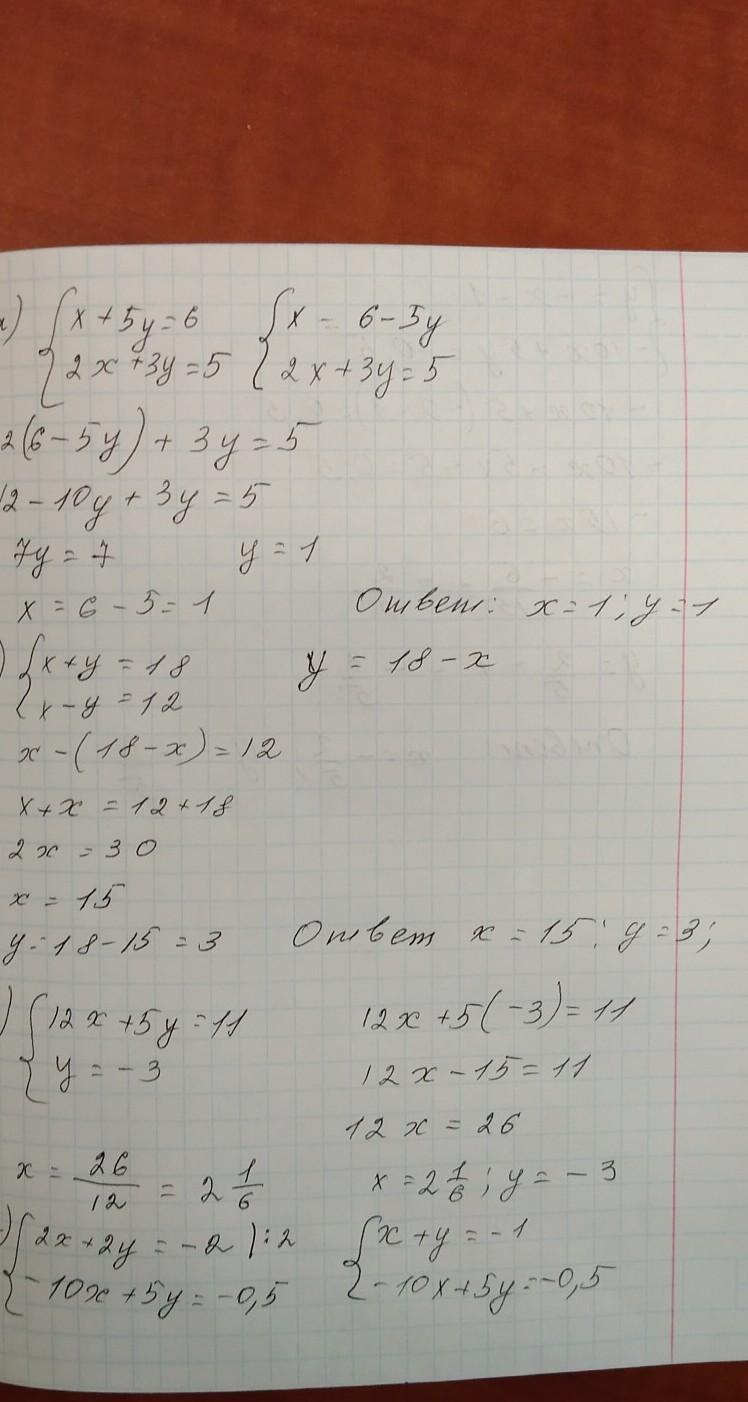 {x + 5y = 6 {x = 6 - 5y
2x + 3y = 5 2x + 3y = 5
2(6 - 5y) + 3y = 5
12 - 10y + 3y = 5
7y = 7 y = 1
x = 6 - 5 = 1 Ответ: x = 1; y = 1
) {x + y = 18 y = 18 - x
x - y = 12
x - (18 - x) = 12
x + x = 12 + 18
2x = 30
x = 15
y = 18 - 15 = 3 Ответ x = 15; y = 3;
) {12x + 5y = 11 12x + 5(-3) = 11
y = -3 12x - 15 = 11
12x = 26
x = 26/12 = 2 1/6 x = 2 1/6; y = -3
) {2x + 2y = -2 |:2 {x + y = -1
-10x + 5y = -0,5 -10x + 5y = -0,5